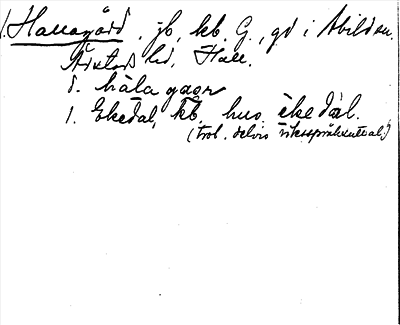 1. Hallagård, jb, kb. G., gd i Abild sn.
Årstads hd, Hall.
d. hàla gaọr
1. Ekedal, kb. hus. èkedàl.
(trol. delvis riksspråksuttal!)